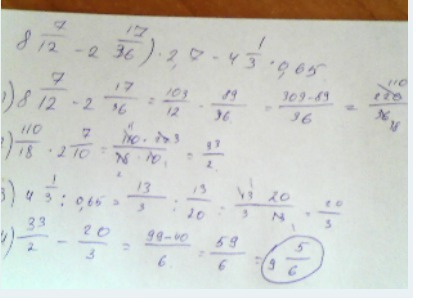 8 7/12 - 2 17/36) · 2,7 - 4 1/3 : 0,65
1) 8 7/12 - 2 17/36 = 103/12 - 89/36 = 309-89/36 = 220/36 110/18
2) 110/18 · 2 7/10 = 110 · 27/18 · 10 = 33/2
3) 4 1/3 : 0,65 = 13/3 : 13/20 = 13/3 20/13 = 20/3
4) 33/2 - 20/3 = 99-40/6 = 59/6 = 9 5/6